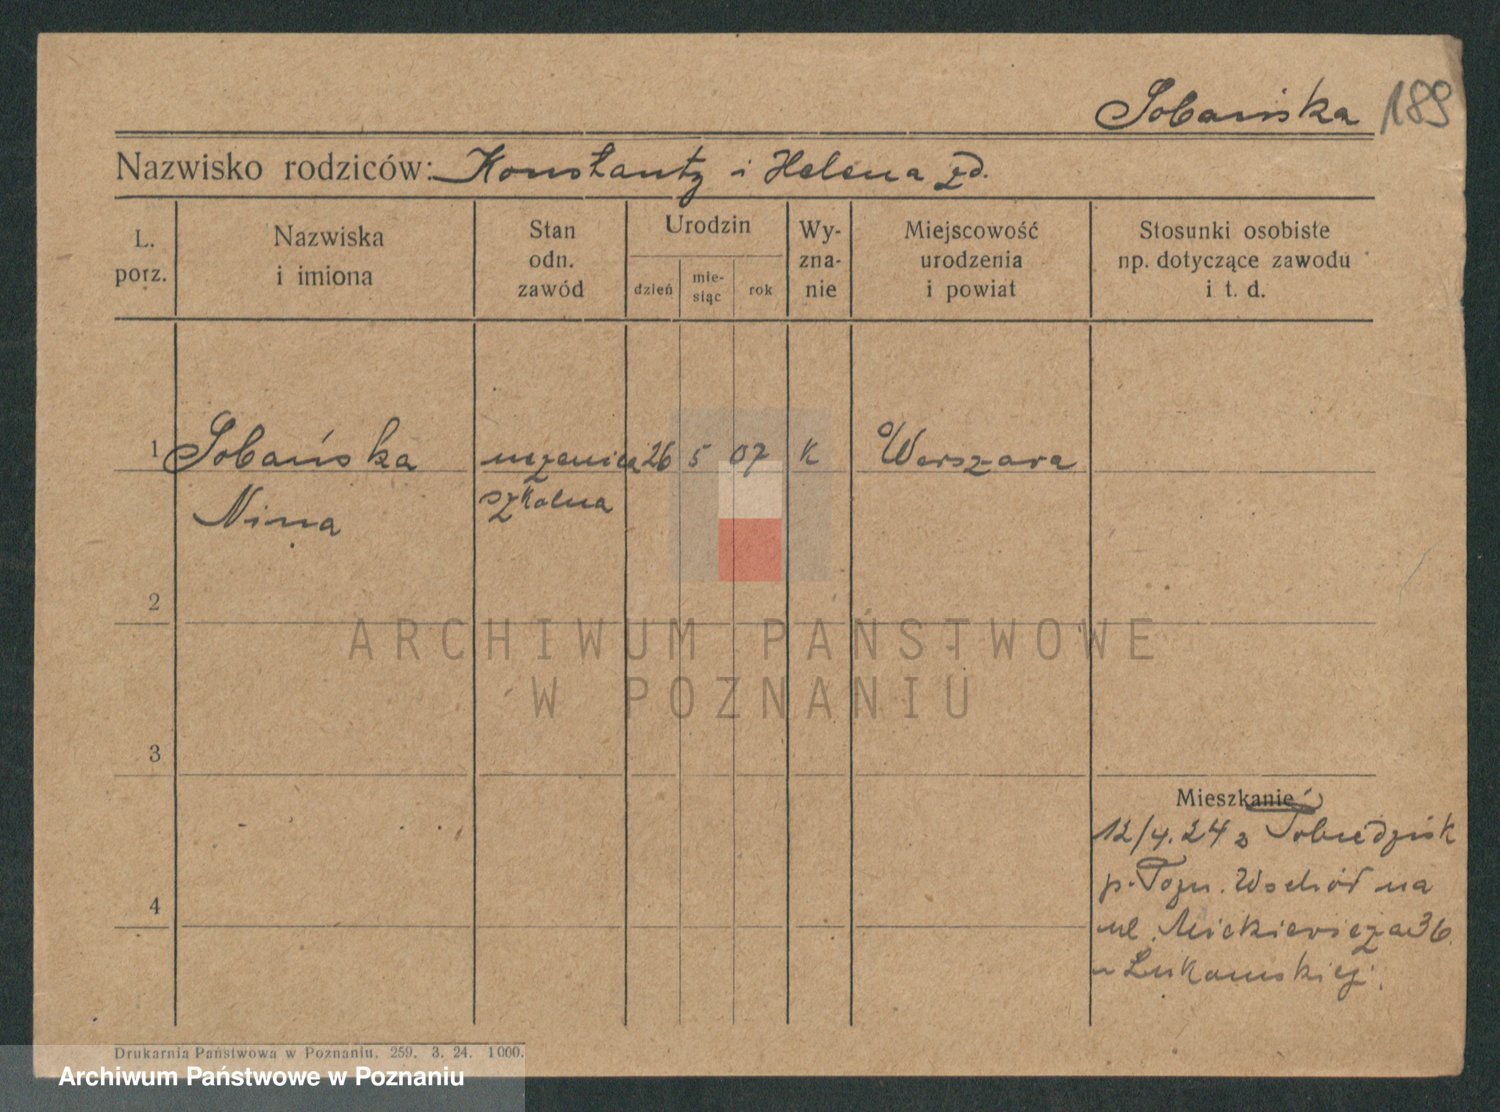 Sobańska 189
Nazwisko rodziców: Konstanty i Helena zd.
L. porz.
Nazwiska i imiona
Stan odn. zawód
Urodzin
dzień
mie-
siąc
rok
Wy-
zna-
nie
Miejscowość
urodzenia
i powiat
Stosunki osobiste
np. dotyczące zawodu
i t. d.
1 Sobańska uczenica 26 5 07 K Warszawa
Nina szkolna
2
3
4
Mieszkanie
12/4.24 z
p. Pozn. Wschód na
ul. Mickiewicza 36
u
ARCHIWUM PAŃSTWOWE
W POZNANIU
Drukarnia Państwowa w Poznaniu. 259. 3. 24. 1000.
Archiwum Państwowe w Poznaniu